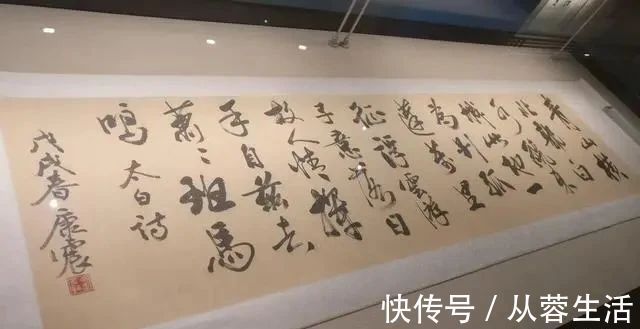 青山横
北郭白
水繞東
城此地一
為别孤
蓬萬里
征浮雲游
子意落日
故人情揮
手自兹去
萧〻班馬
鳴 太白诗
戊戌春 康震
快传号 / 从蓉生活